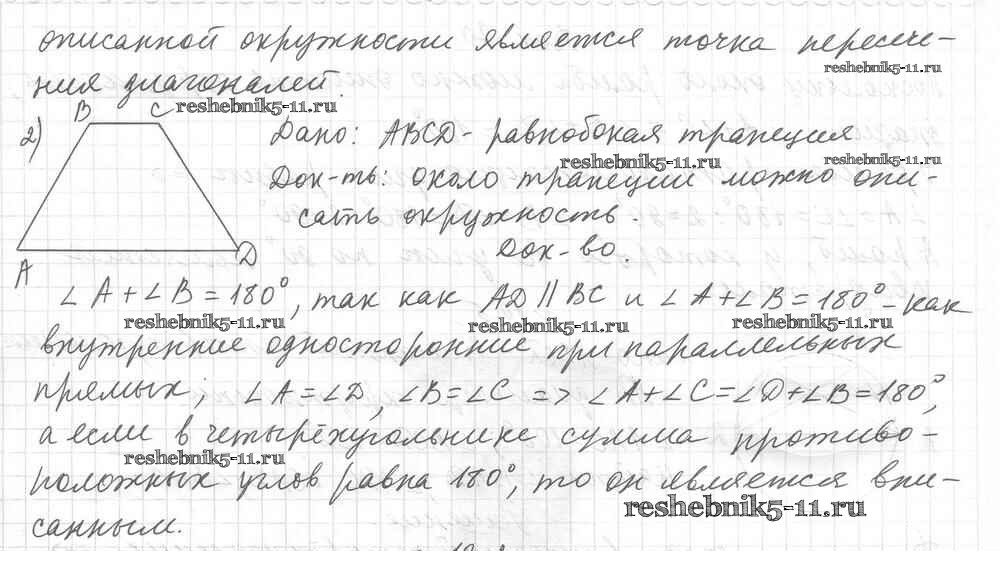 описанной окружности является точка пересече-
reshebnik5-11.ru
ния диагоналей.
reshebnik5-11.ru
B C
2)
Дано: ABCD - равнобокая трапеция
reshebnik5-11.ru
reshebnik5-11.ru
Док-ть: около трапеции можно опи-
сать окружность.
A D
Док-во.
∠A+∠B=180°, так как AD||BC и ∠A+∠B=180° - как
reshebnik5-11.ru
reshebnik5-11.ru
reshebnik5-11.ru
внутренние односторонние при параллельных
прямых; ∠A=∠D, ∠B=∠C => ∠A+∠C=∠D+∠B=180°,
а если в четырёхугольнике сумма противо-
reshebnik5-11.ru
положных углов равна 180°, то он является впи-
reshebnik5-11.ru
санным.